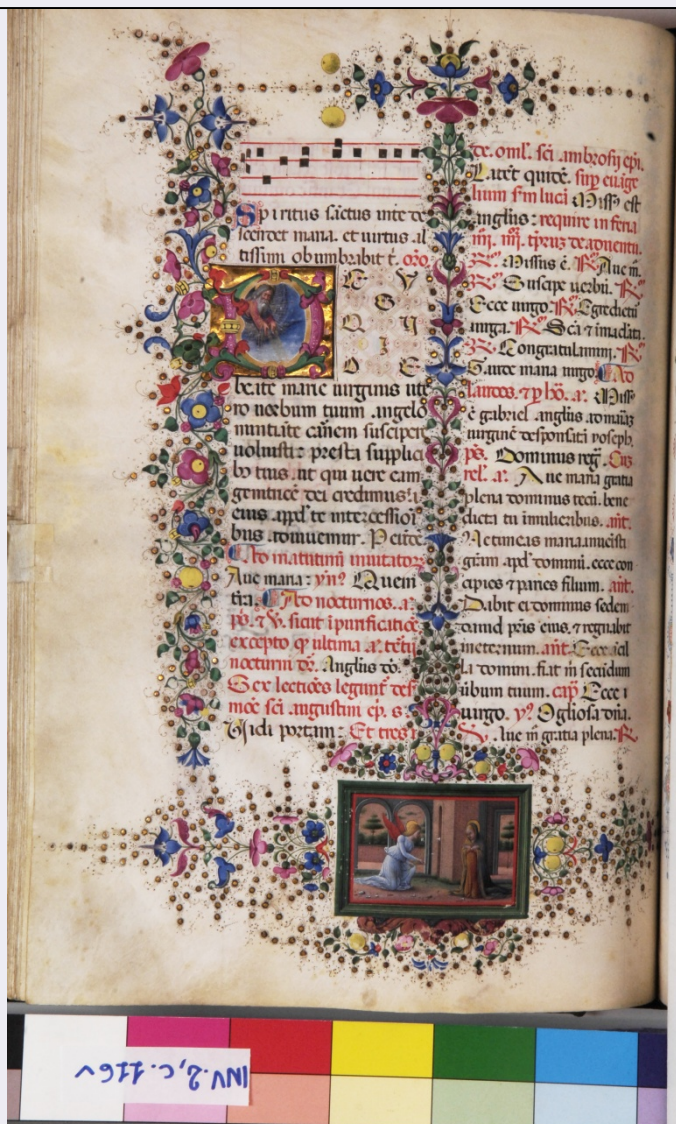 Spiritus sanctus inte de
scendet maria. et uirtus al
tissimi obumbrabit t. oro
D E V
S Q
Q U
I
D E
beate marie uirginis ute
ro uerbum tuum angelo
nuntiate carnem suscipere
uoluisti: presta supplici
bus tuis. ut qui uere eam
genitrice dei credimus:
eius apd te intercessioi
bus adiuuemur. P eude
Ad matutinu inuitator
Aue maria: yn? Quem
terra. Ad nocturnos. a.
ps. 7 V. sicut i purificatioe
excepto q ultima a. tertii
nocturni dr. Anglus do.
Sex lectiões legunt
sci augustini ep. s:
Vidi portam: Et tres
de. oml. sci ambrosij epi.
Latet quide. sup euage
lium sm lucā Miss est
anglus: require in feria
de aduentu.
R. Missus e. R. Aue m.
R. Suscipe uerbu. R.
Ecce uirgo. R. Egredietur
uirga. R. Scā 7 imaculata.
R. Congratulamini. R.
Salue maria uirgo. Ad
laudes. 7 p ho. a. Miss
e gabriel anglus ad mariaz
uirgine desponsata yoseph.
ps. Dominus reg.
rel. a. Aue maria gratia
plena dominus tecu. bene
dicta tu i mulieribus. ant.
Ne timeas maria inuenisti
grām apd dominu. ecce con
cipies 7 paries filium. ant.
Dabit ei dominus sedem
dauid pris eius. 7 regnabit
ineternum. ant. Ecce ancil
la domini. fiat m secudum
uerbum tuum. cap Ecce i
uirgo. y? O gliosa dna.
V. Aue m gratia plena. R
INV. 2, c. 116v